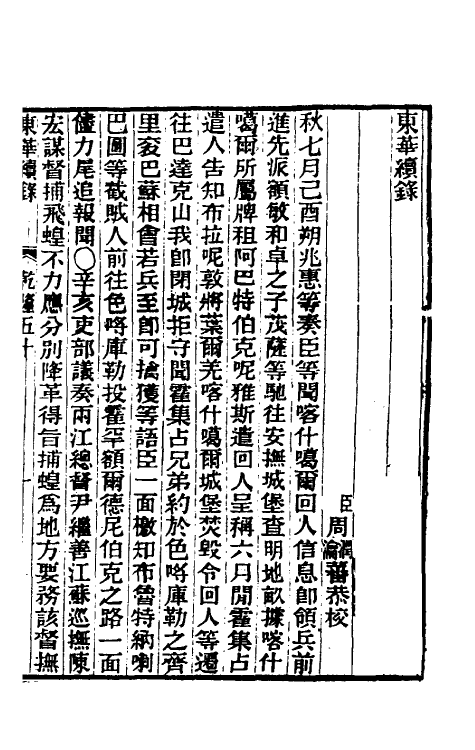 東華續錄
臣周潤蕃瀹蕃恭校
秋七月己酉朔兆惠等奏臣等聞喀什噶爾回人信息卽領兵前
進先派額敏和卓之子茂薩等馳往安撫城堡查明地畝據喀什
噶爾所屬牌租阿巴特伯克呢雅斯遣回人呈稱六月聞霍集占
遣人告知布拉呢敦將葉爾羌喀什噶爾城堡焚毀令回人等遷
往巴達克山我卽閉城拒守聞霍集占兄弟約於色㖽庫勒之齊
里衮巴蘇相會若兵至卽可擒獲等語臣一面檄知布魯特納喇
巴圖等截賊人前往色㖽庫勒投霍罕額爾德尼伯克之路一面
儘力尾追報聞〇辛亥吏部議奏兩江總督尹繼善江蘇巡撫陳
宏謀督捕飛蝗不力應分別降革得旨捕蝗爲地方要務該督撫
東華續錄 乾隆五十 一